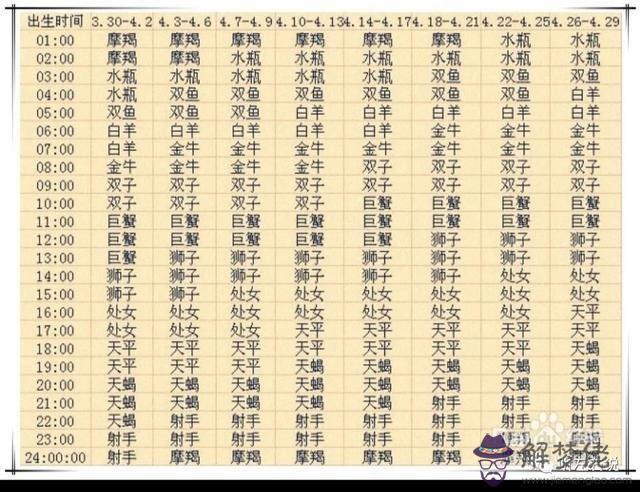 出生时间 3.30-4.2 4.3-4.6 4.7-4.9 4.10-4.13 4.14-4.17 4.18-4.21 4.22-4.25 4.26-4.29
01:00 摩羯 摩羯 摩羯 摩羯 摩羯 摩羯 水瓶 水瓶
02:00 摩羯 摩羯 水瓶 水瓶 水瓶 水瓶 水瓶 水瓶
03:00 水瓶 水瓶 水瓶 水瓶 水瓶 双鱼 双鱼 双鱼
04:00 水瓶 双鱼 双鱼 双鱼 双鱼 双鱼 双鱼 白羊
05:00 双鱼 双鱼 双鱼 白羊 白羊 白羊 白羊 白羊
06:00 白羊 白羊 白羊 白羊 白羊 金牛 金牛 金牛
07:00 白羊 金牛 金牛 金牛 金牛 金牛 金牛 金牛
08:00 金牛 金牛 金牛 金牛 双子 双子 双子 双子
09:00 双子 双子 双子 双子 双子 双子 双子 双子
10:00 双子 双子 双子 双子 巨蟹 巨蟹 巨蟹 巨蟹
11:00 巨蟹 巨蟹 巨蟹 巨蟹 巨蟹 巨蟹 巨蟹 巨蟹
12:00 巨蟹 巨蟹 巨蟹 巨蟹 巨蟹 狮子 狮子 狮子
13:00 巨蟹 狮子 狮子 狮子 狮子 狮子 狮子 狮子
14:00 狮子 狮子 狮子 狮子 狮子 狮子 处女 处女
15:00 狮子 狮子 处女 处女 处女 处女 处女 处女
16:00 处女 处女 处女 处女 处女 处女 处女 天平
17:00 处女 处女 处女 天平 天平 天平 天平 天平
18:00 天平 天平 天平 天平 天平 天平 天平 天蝎
19:00 天平 天平 天平 天蝎 天蝎 天蝎 天蝎 天蝎
20:00 天蝎 天蝎 天蝎 天蝎 天蝎 天蝎 天蝎 天蝎
21:00 天蝎 天蝎 天蝎 天蝎 天蝎 射手 射手 射手
22:00 天蝎 射手 射手 射手 射手 射手 射手 射手
23:00 射手 射手 射手 射手 射手 射手
24:00:00 射手 摩羯 摩羯 摩羯 摩羯 摩羯
解梦佬
www.jiemenglao.com